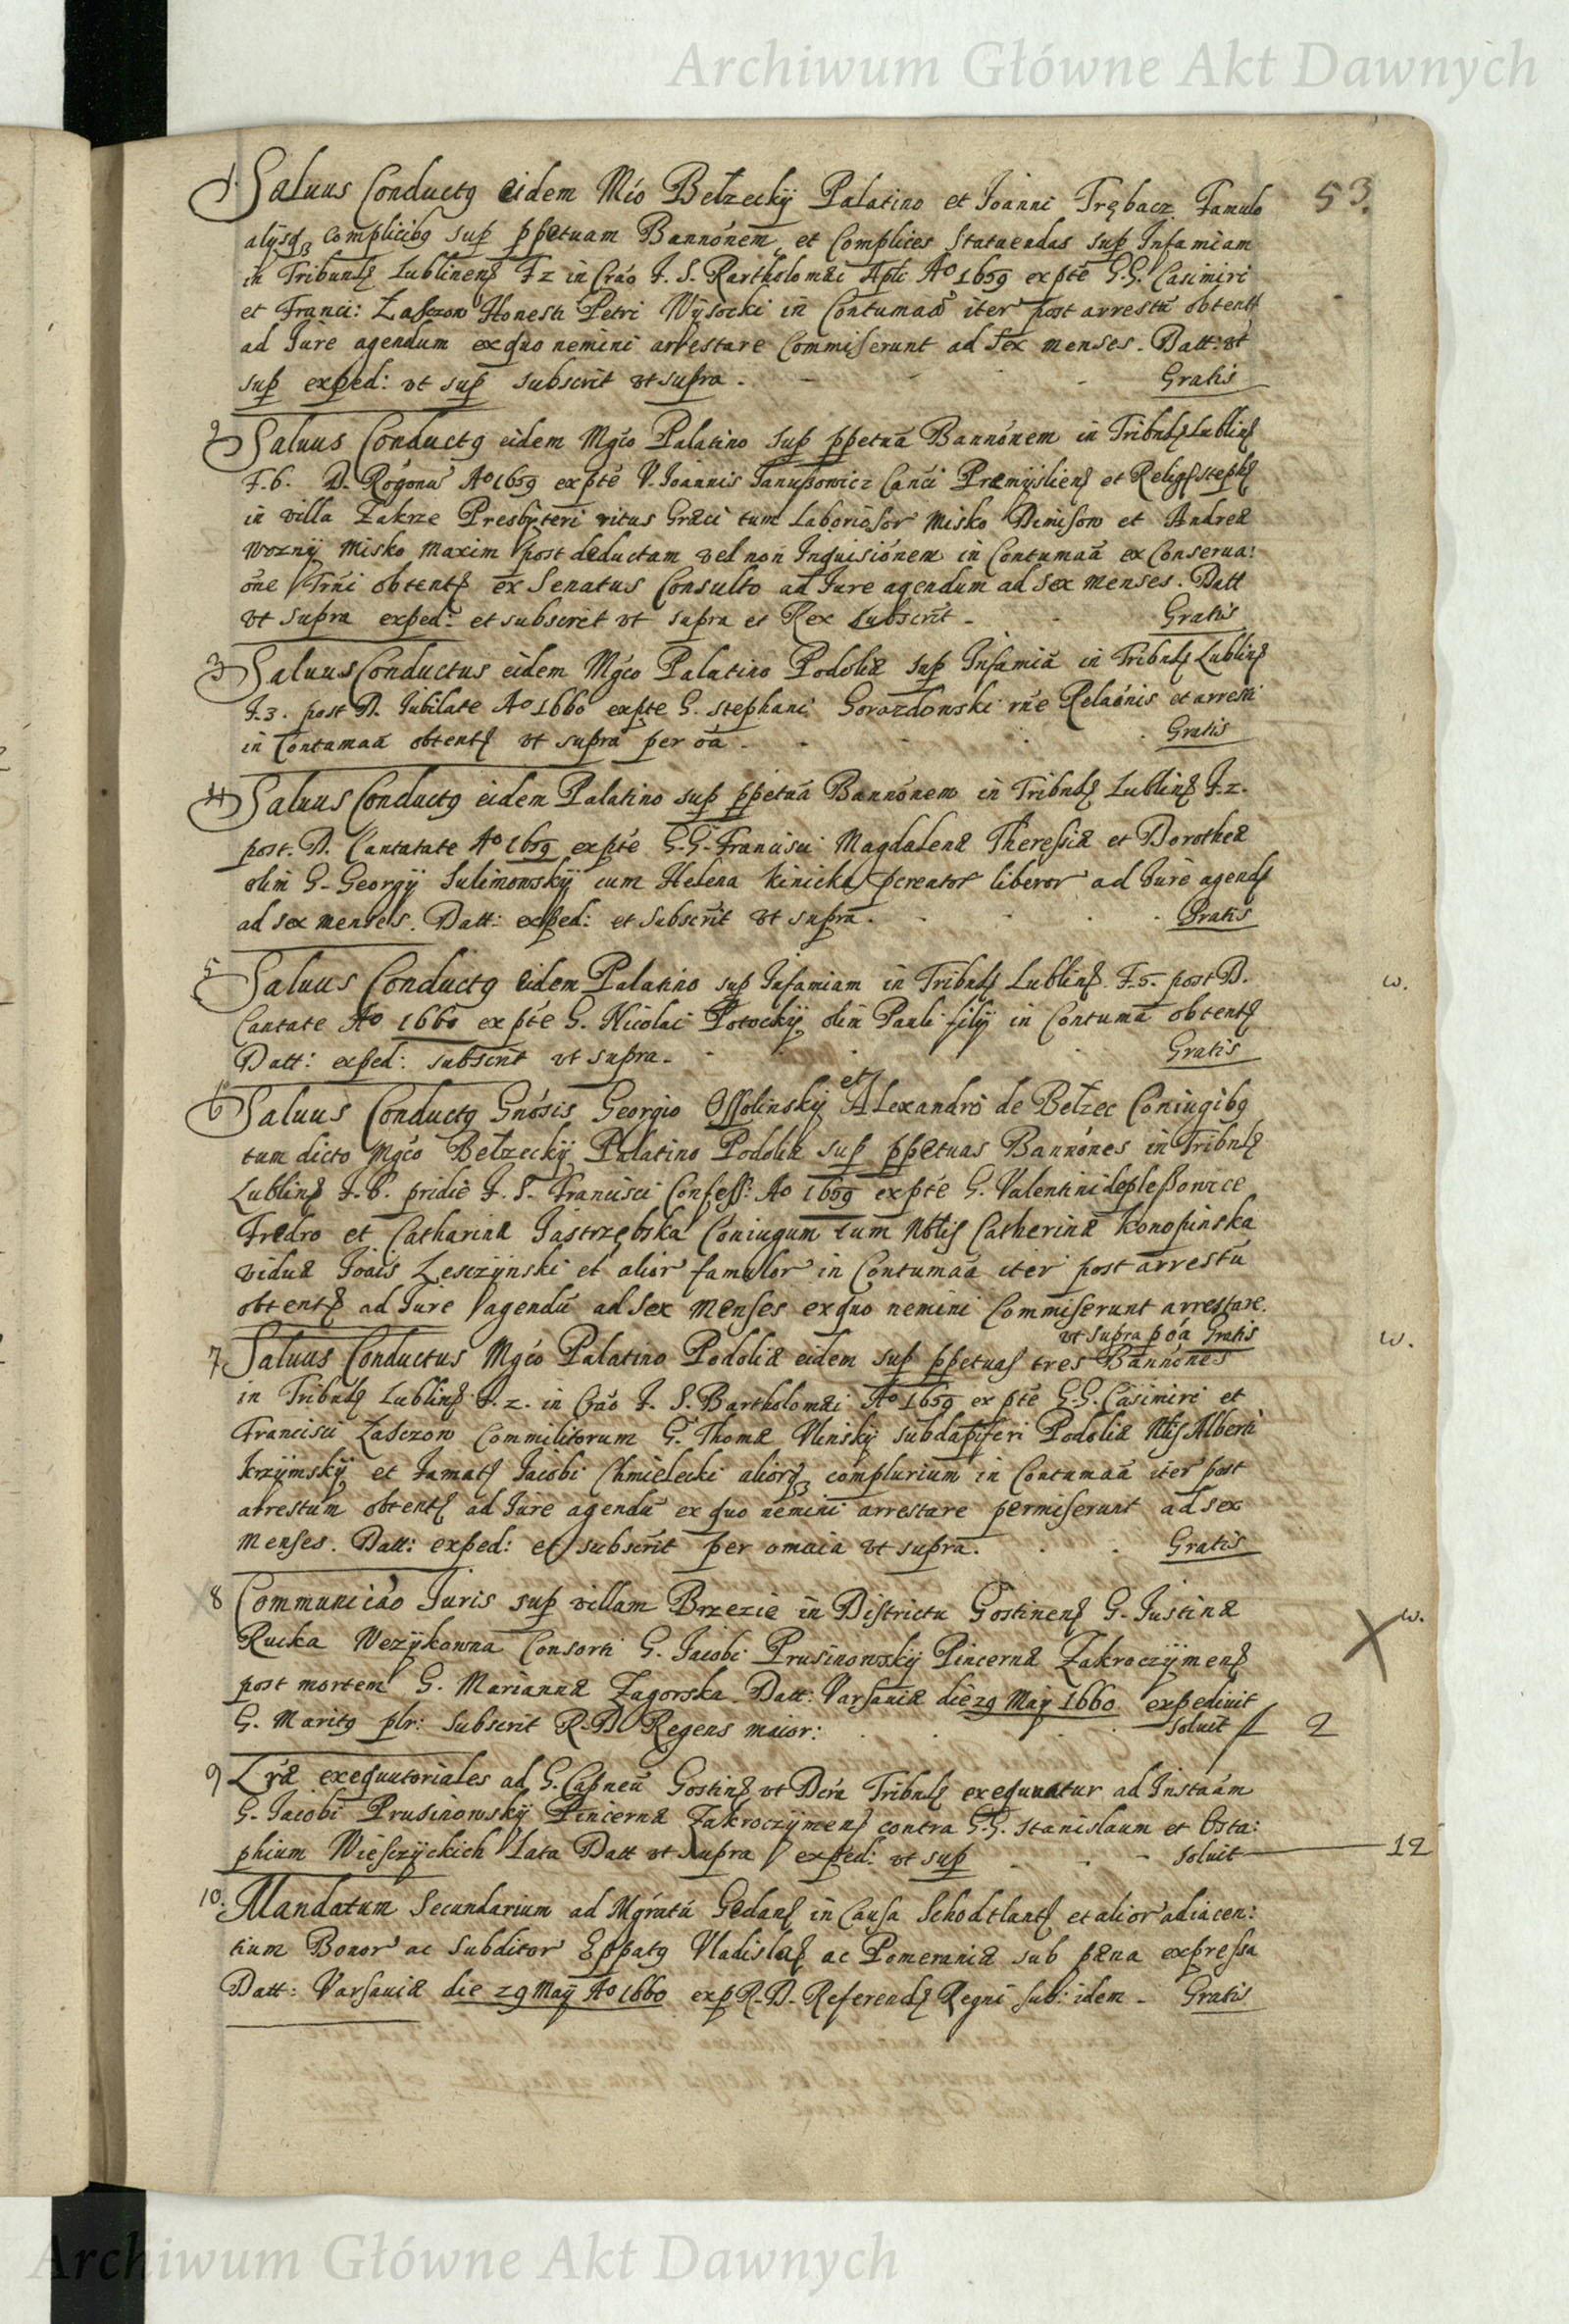 Archiwum Główne Akt Dawnych
53.
1. Saluus Conductg eidem Mło Bełzeckÿ Palatino et Joanni Trębacz Famulo
alÿsqȝ complicibg sup ppetuam Bannónem et Complices Statuendas sup Infamiam
in Tribunlȩ Lublinenȩ F 2 in Crão F. S. Bartholomæi Apli Aº 1659 expte G.G. Casimiri
et Franci: Zasczow Honesti Petri Wÿsocki in Contumaã iter post arrestũ obtentȩ
ad Jure agendum ex quo nemini arrestare Commiserunt ad Sex menses. Datt: vt
sup exped: vt sup subscrit vt supra. Gratis
2 Saluus Conductg eidem Mgco Palatino sup ppetuã Bannónem in Tribnlȩ Lublinȩ
F. 6. D. Rogonũ Aº 1659 expte V. Joannis Janußowicz Canci Premÿslienȩ et Religȩ stephȩ
in villa Zakrze Presbÿteri ritus Græci tum Laboriosor Misko Dimisow et Andrea
Woznÿ Misko Maxim post deductam vel non Inquisiónem in Contumaã ex Conserua:
one Trni obtentȩ ex Senatus Consulto ad Jure agendum ad sex menses. Datt
vt supra exped: et subscrit vt supra et Rex subscrit. Gratis
3 Saluus Conductus eidem Mgco Palatino Podoliæ sup Infamiã in Tribnlȩ Lublinȩ
F. 3. post D. Jubilate Aº 1660 expte G. stephani Gorozdowski rñe Relaónis et arresti
in Contumaã obtentȩ vt supra per oã. Gratis
4 Saluus Conductg eidem Palatino sup ppetuã Bannónem in Tribnlȩ Lublinȩ F. 2.
post. D. Cantatate Aº 1659 expte G.G. Francisci Magdalenæ Theresiæ et Dorotheæ
olim G. Georgÿ Sulimowskÿ cum Helena Kinicka pcreator liberor ad Jure agendȩ
ad sex menses. Datt: exped: et Subscrit vt supra. Gratis
5 Saluus Conductg eidem Palatino sup Infamiam in Tribnlȩ Lublinȩ F. 5. post D. w.
Cantate Aº 1660 expte G. Nicolai Potockÿ olim Pauli filÿ in Contumã obtentȩ
Datt: exped: subscrit vt supra. Gratis
6 Saluus Conductg Gnósis Georgio Ossolinskÿ et Alexandrȩ de Bełzec Coniugibg
tum dicto Mgco Bełzeckÿ Palatino Podoliæ sup ppetuas Bannónes in Tribnlȩ
Lublinȩ F. 6. pridie F. S. Francisci Confess: Aº 1659 expte G. Valentini deplessowice
Fredro et Catharinæ Jastrzębska Coniugum tum Nblis Catherinæ Konopinska
viduæ Joãis Lesczÿnski et alior famulor in Contumaã iter post arrestũ
obtentȩ ad Jure agendũ ad Sex Menses ex quo nemini Commiserunt arrestare.
vt supra p oã Gratis
7 Saluus Conductus Mgco Palatino Podoliæ eidem sup ppetuas tres Bannónes w.
in Tribnlȩ Lublinȩ F. 2. in Crão F. S. Bartholomæi Aº 1659 expte G.G. Casimiri et
Francisci Zasczow Commilitorum G. Thomæ Vlinskÿ subdapiferi Podoliæ Nblis Alberti
Krzÿmskÿ et Famatȩ Jacobi Chmielecki aliorqȝ complurium in Contumaã iter post
arrestum obtentȩ ad Jure agendũ ex quo nemini arrestare permiserunt ad sex
Menses. Datt: exped: et subscrit per omnia vt supra. Gratis
8 Communicão Juris sup villam Brzezie in Districtu Gostinenȩ G. Justinæ w.
Rucka Wezÿkowna Consorti G. Jacobi Prusinowskÿ Pincernæ Zakroczÿmenȩ X
post mortem G. Mariannæ Zagorska. Datt: Varsauiæ die 29 Maÿ 1660 expediuit
G. Maritg plr: Subscrit R.D. Regens maior: soluit f 2
9 Lræ exequutoriales ad G. Capneũ Gostinȩ vt Dcra Tribnlȩ exequuatur ad Instaãm
G. Jacobi Prusinowskÿ Pincernæ Zakroczÿmenȩ contra G.G. Stanislaum et Osta:
phium Wiesczÿckich Lata Datt vt supra exped: vt sup soluit 12
10. Mandatum Secundarium ad Mgratũ Gedanȩ in Causa Schodtlantȩ et alior adiacen:
tium Bonor ac Subditor Eppatg Vladislaȩ ac Pomeraniæ sub pæna expressa
Datt: Varsauiæ die 29 Maÿ Aº 1660 exp R.D. Referendȩ Regni sub: idem. Gratis
Archiwum Główne Akt Dawnych